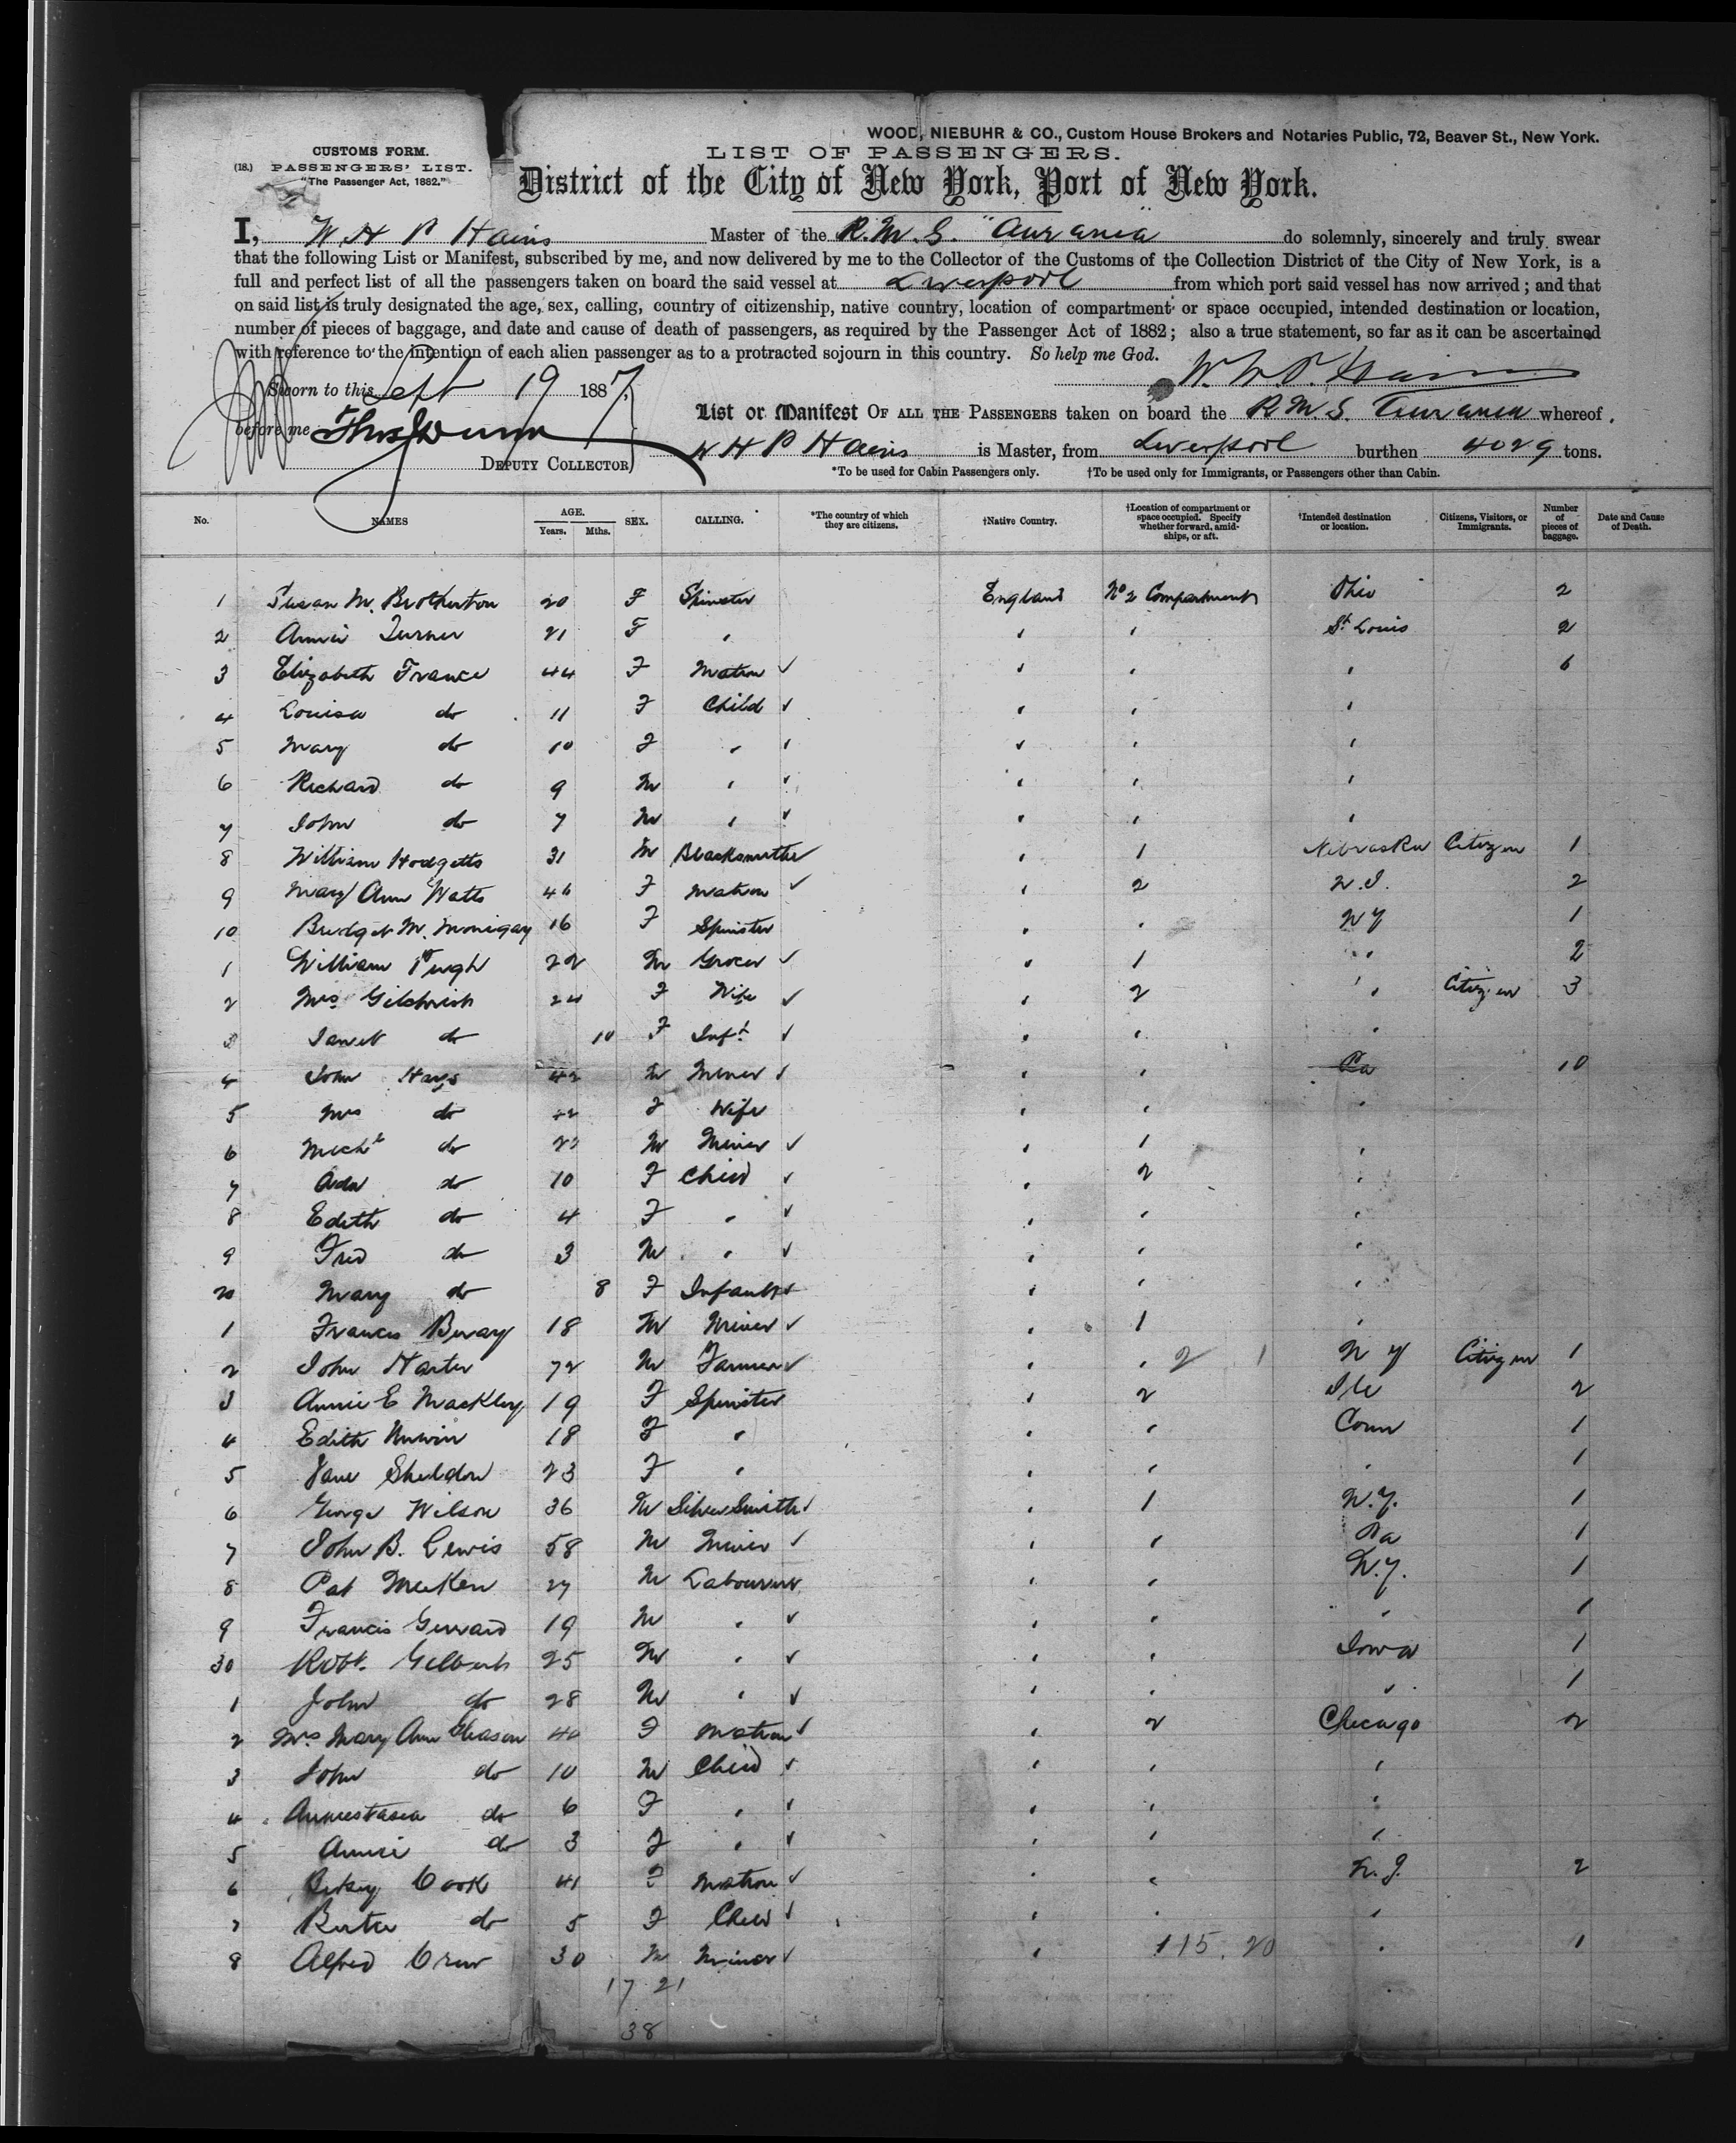 WOOD, NIEBUHR & CO., Custom House Brokers and Notaries Public, 72, Beaver St., New York.
CUSTOMS FORM.
LIST OF PASSENGERS.
(18.) PASSENGERS' LIST.
"The Passenger Act, 1882."
District of the City of New York, Port of New York.
I, W. H P Hains Master of the R.M.S. "Aurania" do solemnly, sincerely and truly swear
that the following List or Manifest, subscribed by me, and now delivered by me to the Collector of the Customs of the Collection District of the City of New York, is a
full and perfect list of all the passengers taken on board the said vessel at Liverpool from which port said vessel has now arrived; and that
on said list is truly designated the age, sex, calling, country of citizenship, native country, location of compartment or space occupied, intended destination or location,
number of pieces of baggage, and date and cause of death of passengers, as required by the Passenger Act of 1882; also a true statement, so far as it can be ascertained
with reference to the intention of each alien passenger as to a protracted sojourn in this country. So help me God.
W. H. P. Hains
Sworn to this Sept 19 1887,
List or Manifest OF ALL THE PASSENGERS taken on board the R.M.S. Aurania whereof
before me
W H P Hains is Master, from Liverpool burthen 4029 tons.
DEPUTY COLLECTOR
*To be used for Cabin Passengers only. †To be used only for Immigrants, or Passengers other than Cabin.
No. NAMES AGE. Years. Mths. SEX. CALLING. *The country of which they are citizens. †Native Country. †Location of compartment or space occupied. Specify whether forward, amidships, or aft. †Intended destination or location. Citizens, Visitors, or Immigrants. Number of pieces of baggage. Date and Cause of Death.
1 Susan M. Brotherton 20 F Spinster England No 2 Compartment Ohio 2
2 Annie Turner 21 F " " " St Louis 2
3 Elizabeth France 44 F Matron ✓ " " " 6
4 Louisa do 11 F Child ✓ " " "
5 Mary do 10 F " " " " "
6 Richard do 9 M " ✓ " " "
7 John do 7 M " ✓ " " "
8 William Hodgetts 31 M Blacksmith ✓ " 1 Nebraska Citizen 1
9 Mary Ann Watts 46 F Matron ✓ " 2 2
10 Bridget M. Monigay 16 F Spinster " " NY 1
1 William Pugh 22 M Grocer ✓ " 1 " 2
2 Mrs Gilchrist 24 F Wife ✓ " 2 " Citizen 3
3 Janet do 10 F Inft ✓ " " "
4 John Hays 42 M Miner ✓ " " Pa 10
5 Mrs do F Wife " " "
6 Michl do 22 M Miner ✓ " 1 "
7 Ada do 10 F Child ✓ " 2 "
8 Edith do 4 F " ✓ " " "
9 Fred do 3 M " ✓ " " "
20 Mary do 8 F Infant ✓ " " "
1 Francis Bevay 18 M Miner ✓ " 1 "
2 John Harter 72 M Farmer ✓ " " 2 1 N Y Citizen 1
3 Annie E Mackley 19 F Spinster " 2 Ill 2
4 Edith Unwin 18 F " " " Conn 1
5 Jane Sheldon 23 F " " " " 1
6 George Wilson 36 M Silver Smith ✓ " 1 N.Y. 1
7 John B. Lewis 58 M Miner ✓ " " Pa 1
8 Pat Meeken 27 M Labourer ✓ " " N.Y. 1
9 Francis Gerrard 19 M " ✓ " " " 1
30 Robt. Gilbert 25 M " ✓ " " Iowa 1
1 John do 28 M " ✓ " " " 1
2 Mrs Mary Ann Gleason 40 F Matron ✓ " 2 Chicago 2
3 John do 10 M Child ✓ " " "
4 Annestasia do 6 F " ✓ " " "
5 Annie do 3 F " ✓ " " "
6 Betsy Cook 41 F Matron ✓ " " N. J. 2
7 do 5 F Child ✓ " " "
8 Alfred Crew 30 M Miner ✓ " 1 15. 20 " 1
17 21
38